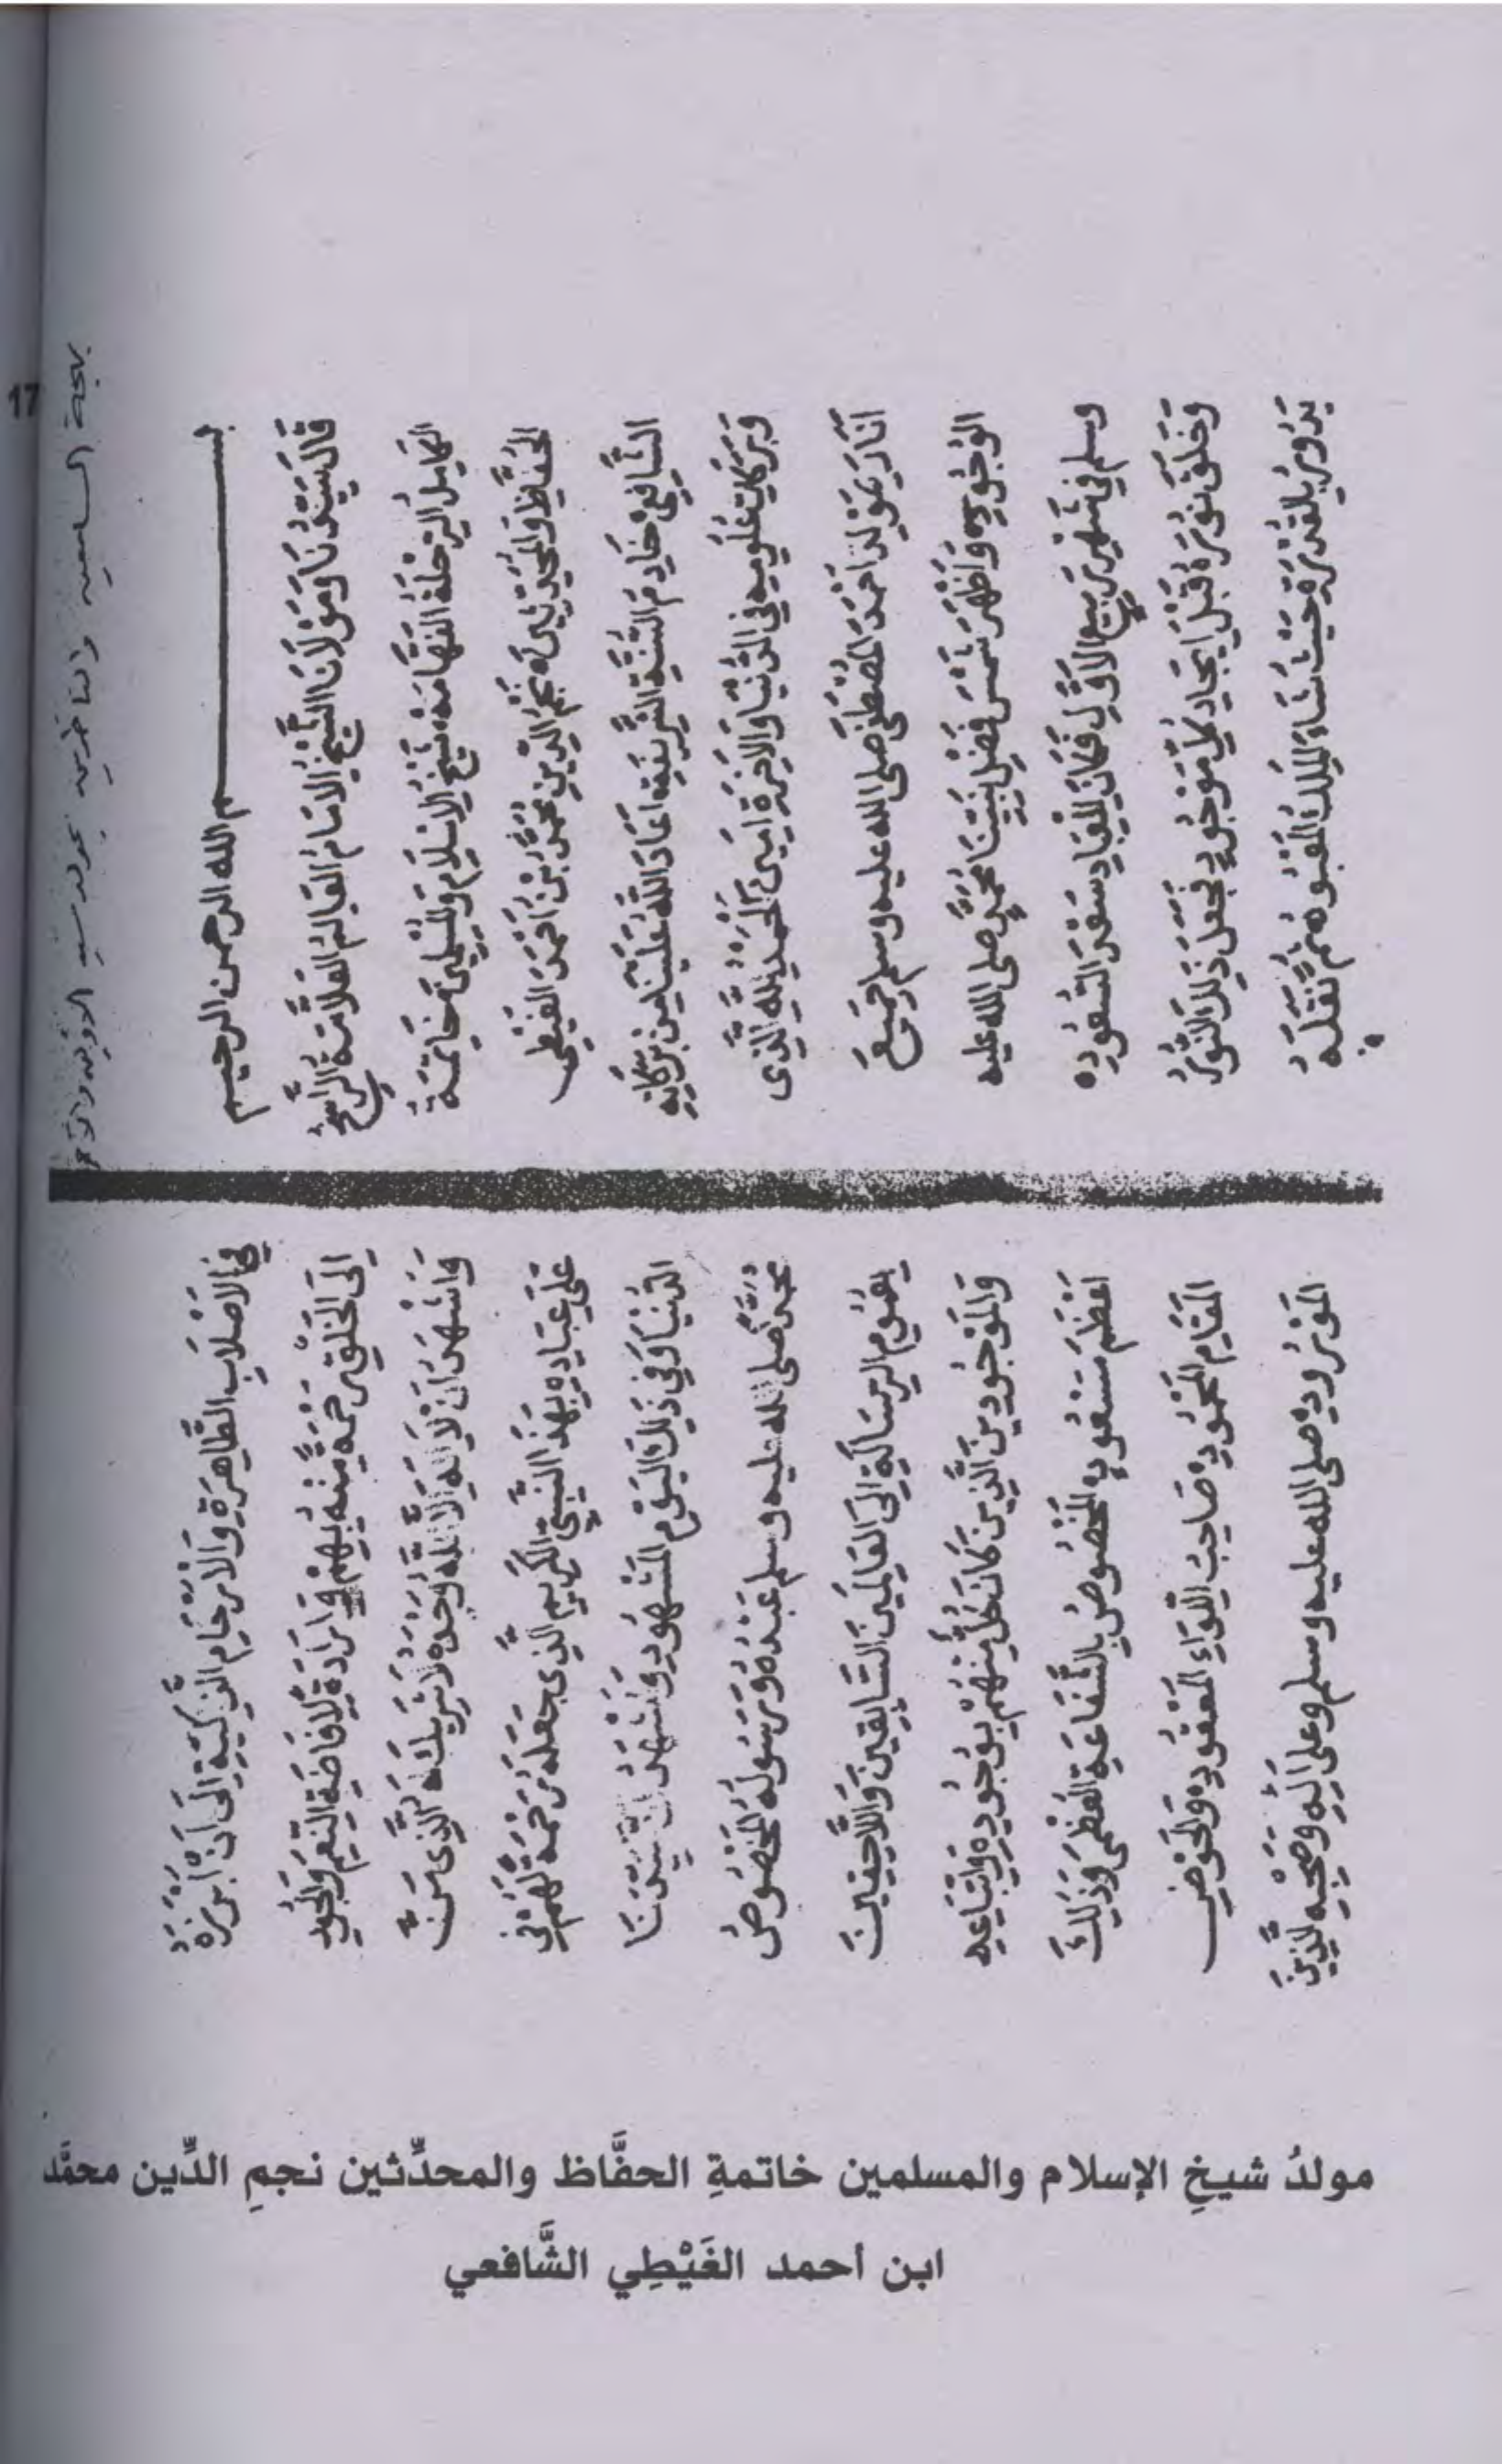 17
بهجة السامعين والناظرين بمولد سيد الاولين والآخر
بسم الله الرحمن الرحيم
قَالَ سَيِّدُنَا وَمَوْلَانَا الشَّيْخُ الْاِمَامُ الْعَالِمُ الْعَلَّامَةُ الرَّاسِخُ
الكَامِلُ الرِّحْلَةُ الْفَهَّامَةُ شَيْخُ الْاِسْلَامِ وَالْمُسْلِمِينَ خَاتِمَةُ
الْحُفَّاظِ وَالْمُحَدِّثِينَ نَجْمُ الدِّينِ مُحَمَّدُ بْنُ اَحْمَدَ الْغَيْطِي
الشَّافِعِيُّ خَادِمُ السُّنَّةِ الشَّرِيفَةِ اَعَادَ اللَّهُ عَلَيْنَا مِنْ بَرَكَاتِهِ
وَبَرَكَاتِ عُلُومِهِ فِي الدُّنْيَا وَالْاٰخِرَةِ اٰمِينَ الْحَمْدُ لِلَّهِ الَّذِى
اَنَارَ بِمَوْلِدِ اَحْمَدَ الْمُصْطَفَى صلى الله عليه وسلم جَمِيعَ
الْوُجُودِ وَاَظْهَرَ شَمْسَ فَضْلِ نَبِيِّنَا مُحَمَّدٍ صلى الله عليه
وسلم فِي شَهْرِ رَبِيعِ الْاَوَّلِ فَكَانَ لِلْعِبَادِ سَفَرَ السُّعُودِ
وَخَلَقَ نُورَهُ قَبْلَ اِيجَادِ كُلِّ مَوْجُودٍ فَجَعَلَ ذٰلِكَ النُّورُ
يَدُورُ بِالْقُدْرَةِ حَيْثُ شَاءَ الْمَلِكُ الْمَعْبُودُ ثُمَّ نَقَلَهُ
في
فِي الْاَصْلَابِ الطَّاهِرَةِ وَالْاَرْحَامِ الزَّكِيَّةِ اِلَى اَنْ اَبْرَزَهُ
اِلَى الْخَلْقِ رَحْمَةً مِنْهُ بِهِمْ وَاِرَادَةً لِاِفَاضَةِ النِّعَمِ وَالْجُودِ
وَاَشْهَدُ اَنْ لَا اِلٰهَ اِلَّا اللَّهُ وَحْدَهُ لَا شَرِيكَ لَهُ الَّذِى مَنَّ
عَلَى عِبَادِهِ بِهٰذَا النَّبِيِّ الْكَرِيمِ الَّذِى جَعَلَهُ رَحْمَةً لَهُمْ فِي
الدُّنْيَا وَفِي ذٰلِكَ الْيَوْمِ الْمَشْهُودِ وَاَشْهَدُ اَنَّ سَيِّدَنَا
مُحَمَّدًا صلى الله عليه وسلم عَبْدُهُ وَرَسُولُهُ الْمَخْصُوصُ
بِعُمُومِ الرِّسَالَةِ اِلَى الْعَالَمِينَ السَّابِقِينَ وَاللَّاحِقِينَ
وَالْمَوْجُودِينَ الَّذِينَ كَانَ كُلٌّ مِنْهُمْ بِوُجُودِهِ وَاتِّبَاعِهِ
اَعْظَمَ مَسْعُودٍ الْمَخْصُوصُ بِالشَّفَاعَةِ الْعُظْمَى وَذٰلِكَ
الْمَقَامِ الْمَحْمُودِ صَاحِبُ اللِّوَاءِ الْمَعْقُودِ وَالْحَوْضِ
الْمَوْرُودِ صلى الله عليه وسلم وعلى اٰلِهِ وَصَحْبِهِ الَّذِينَ
مولدُ شيخِ الإسلام والمسلمين خاتمةِ الحفَّاظ والمحدِّثين نجمِ الدِّين محمَّد
ابن أحمد الغَيْطِي الشَّافعي